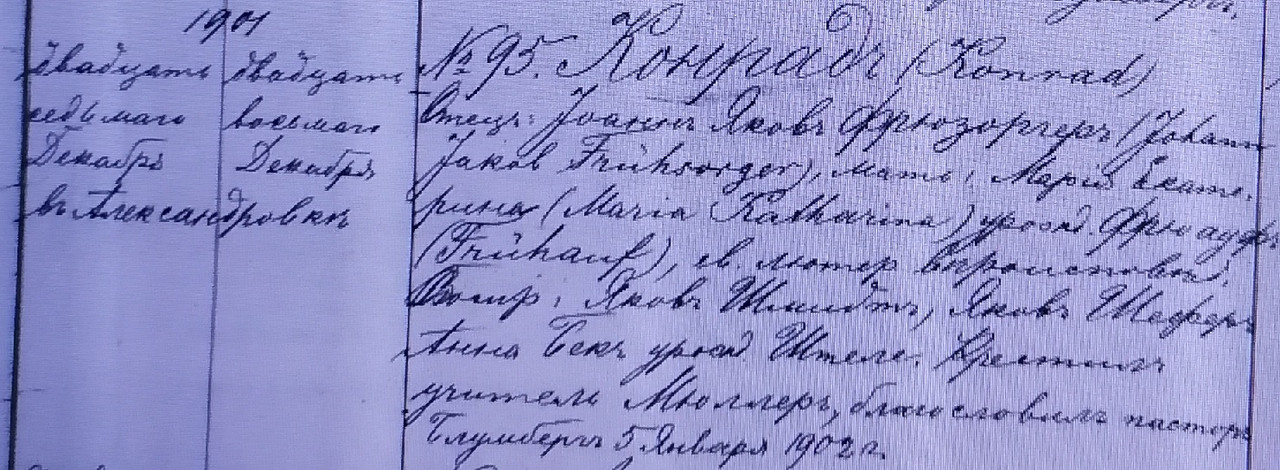 1901
двадцать двадцать
седьмаго восьмаго
Декабря Декабря
въ Александровкѣ
№ 95. Конрадъ (Konrad)
Отецъ: Іоаннъ Яковъ Фрюзоргеръ (Johann
Jakob Frühsorger), мать: Марія Екате-
рина (Maria Katharina) урожд. Фрюауфъ
(Frühauf), ев. лютер. вѣроисповѣд.
Воспр: Яковъ Шмидтъ, Яковъ Шеферъ
Анна Бекъ урожд. Штеле. Крестилъ
учитель Мюллеръ, благословилъ пасторъ
Блумбергъ 5 Января 1902 г.